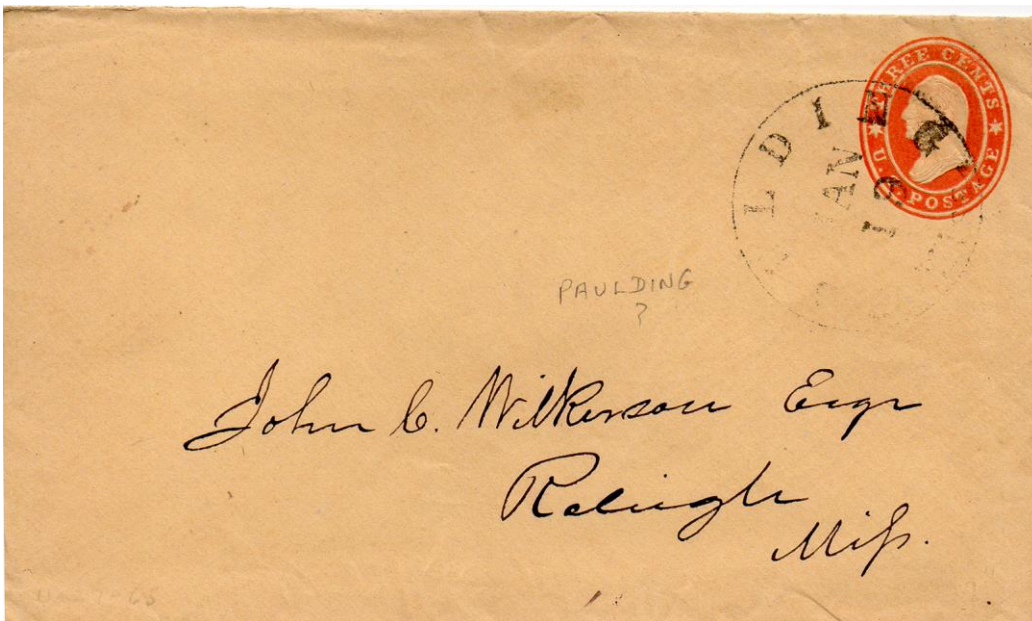 THREE CENTS
U.S. POSTAGE
LDIEG
JAN
19
PAULDING
?
John C. Wilkerson Esqr
Raleigh
Miſs.